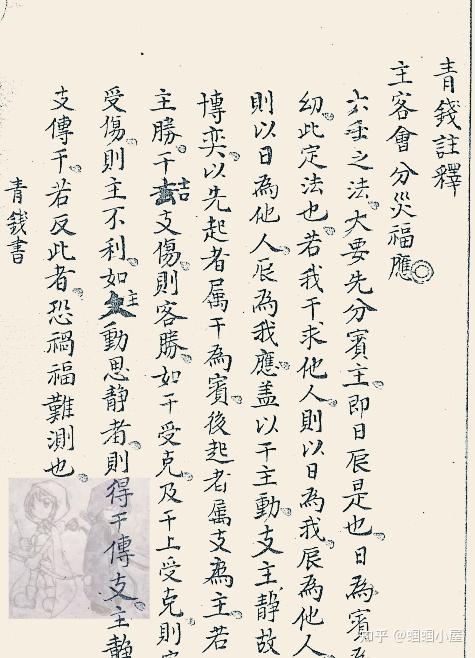 青錢註釋
主客會 分災福應
六壬之法大要先分賓主即日辰是也日為賓
幼此定法也若我干求他人則以日為我辰為他人
則以日為他人辰為我應盖以干主動支主静故
博奕以先起者属干為賓後起者属支為主若
主勝干吉支傷則客勝如干受克及干上受克則
受傷則主不利如主動思静者則得干傳支主静
支傳干若反此者恐禍福難測也
青錢書
知乎 @蝈蝈小屋